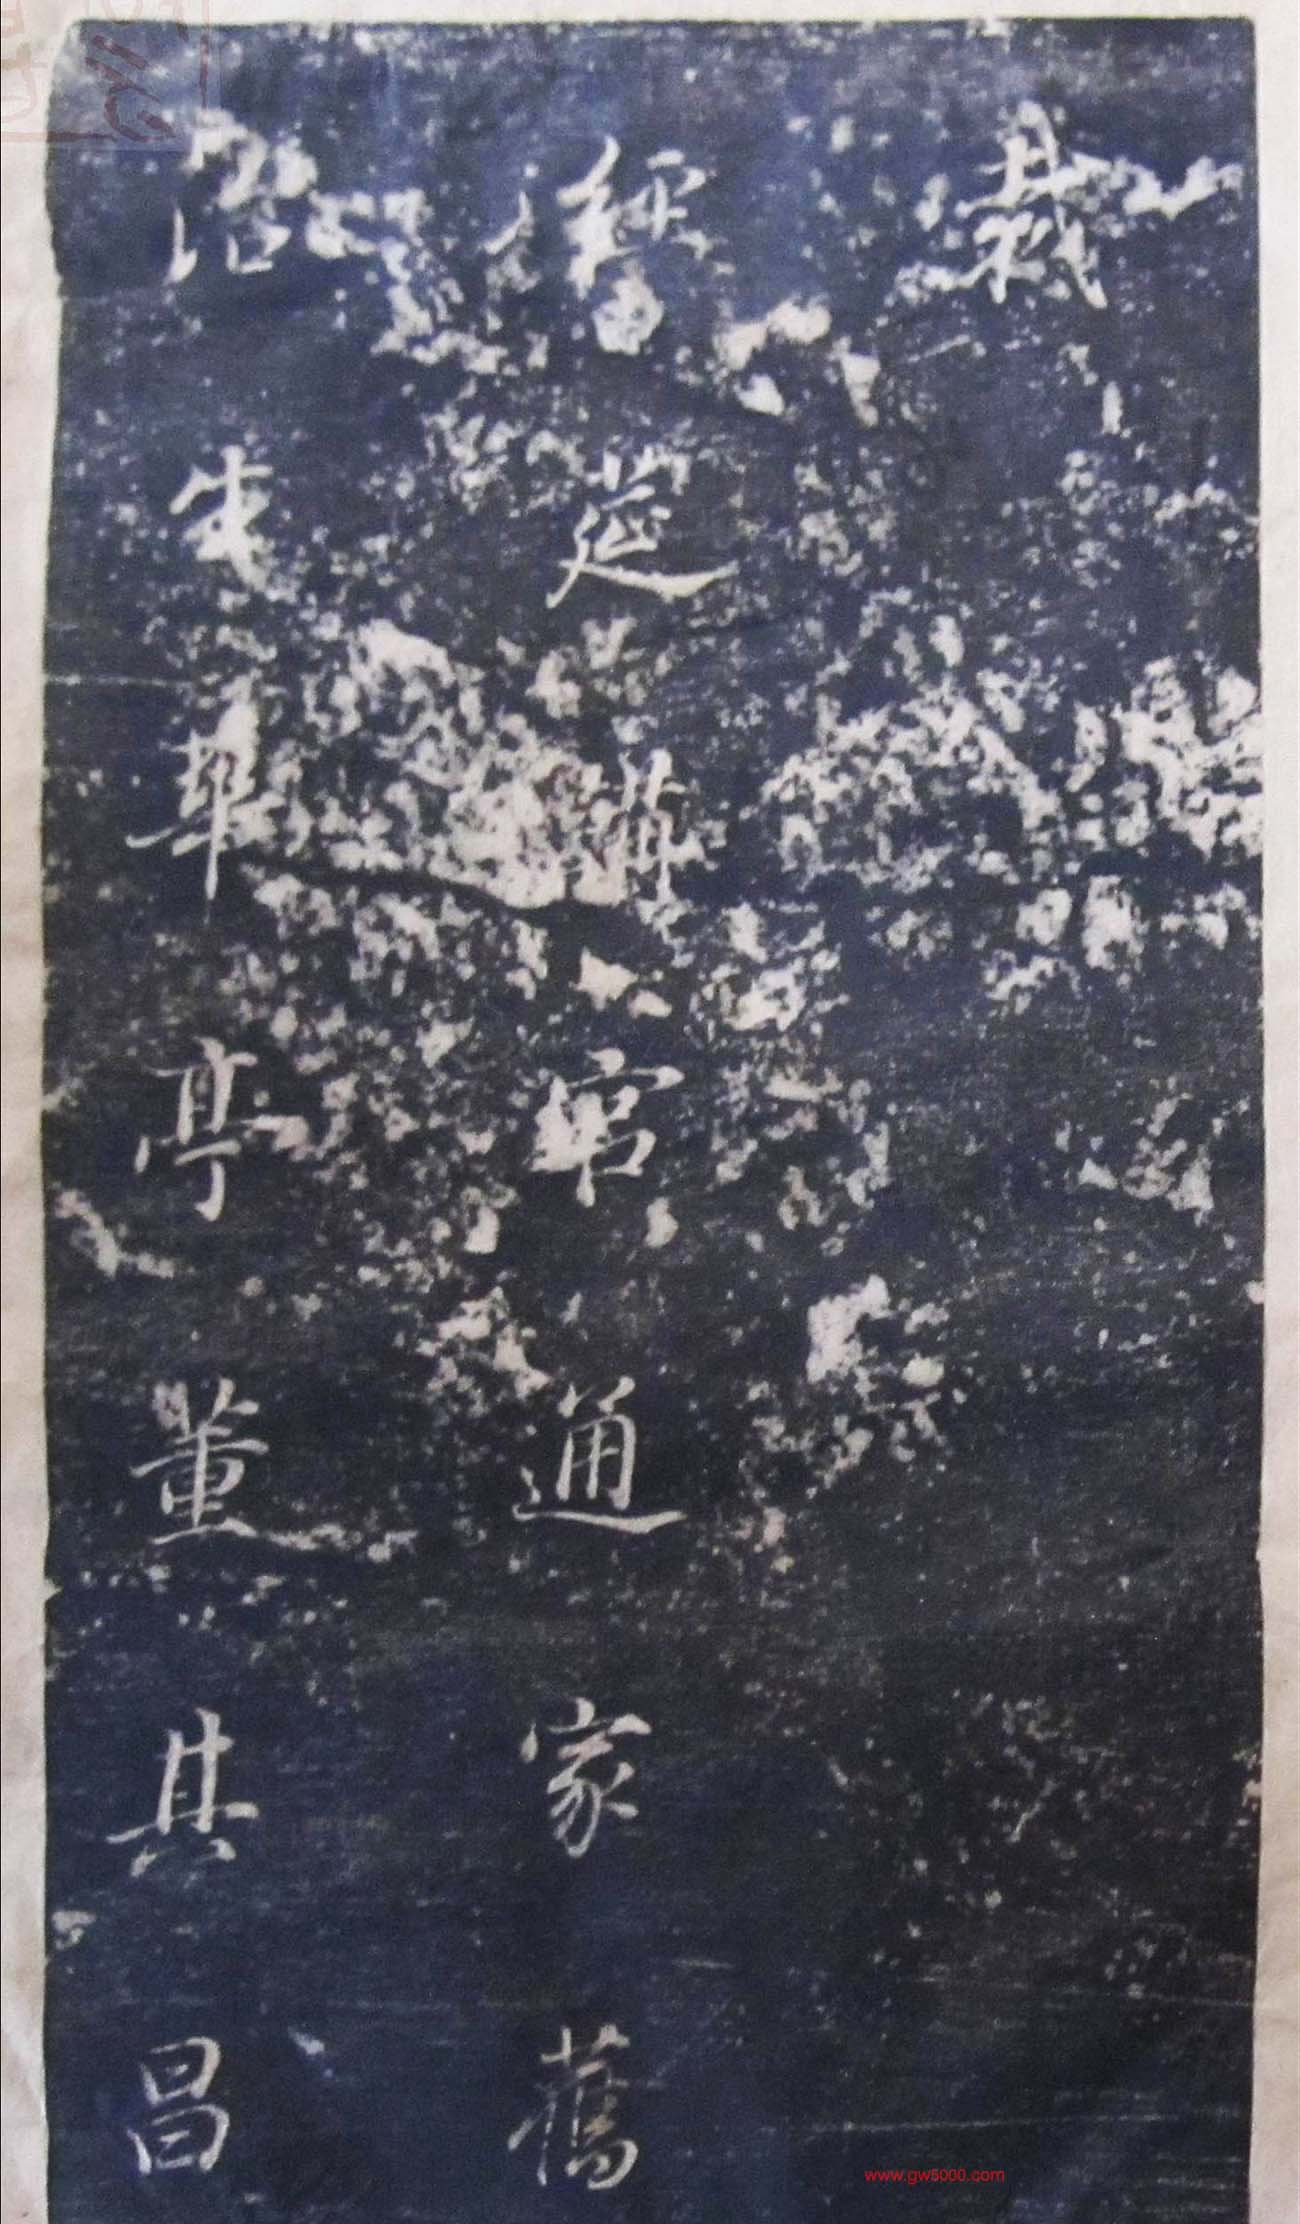 裁
經筵講官通家舊
治生華亭董其昌
www.gw5000.com